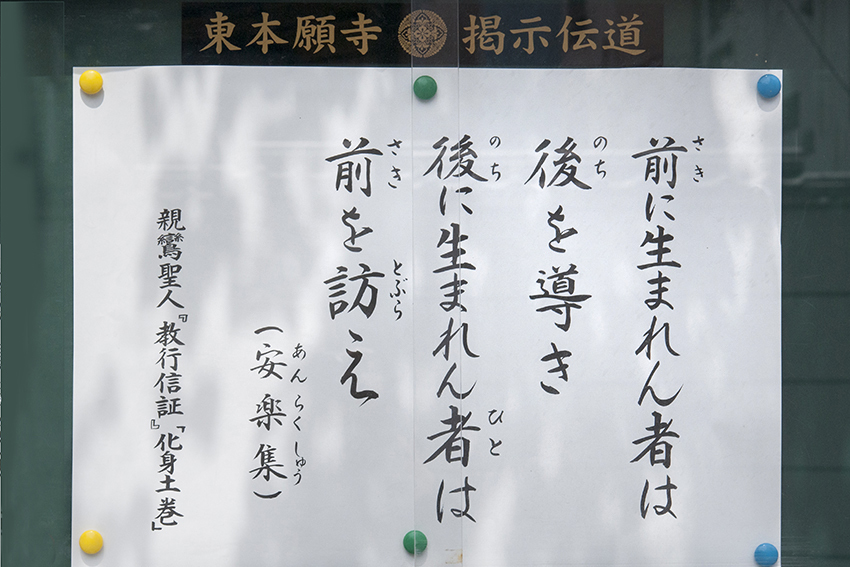 東本願寺 掲示伝道
前に生まれん者は
さき
後を導き
のち
後に生まれん者は
のち ひと
前を訪え
さき とぶら
(安楽集)
あんらくしゅう
親鸞聖人『教行信証』「化身土巻」